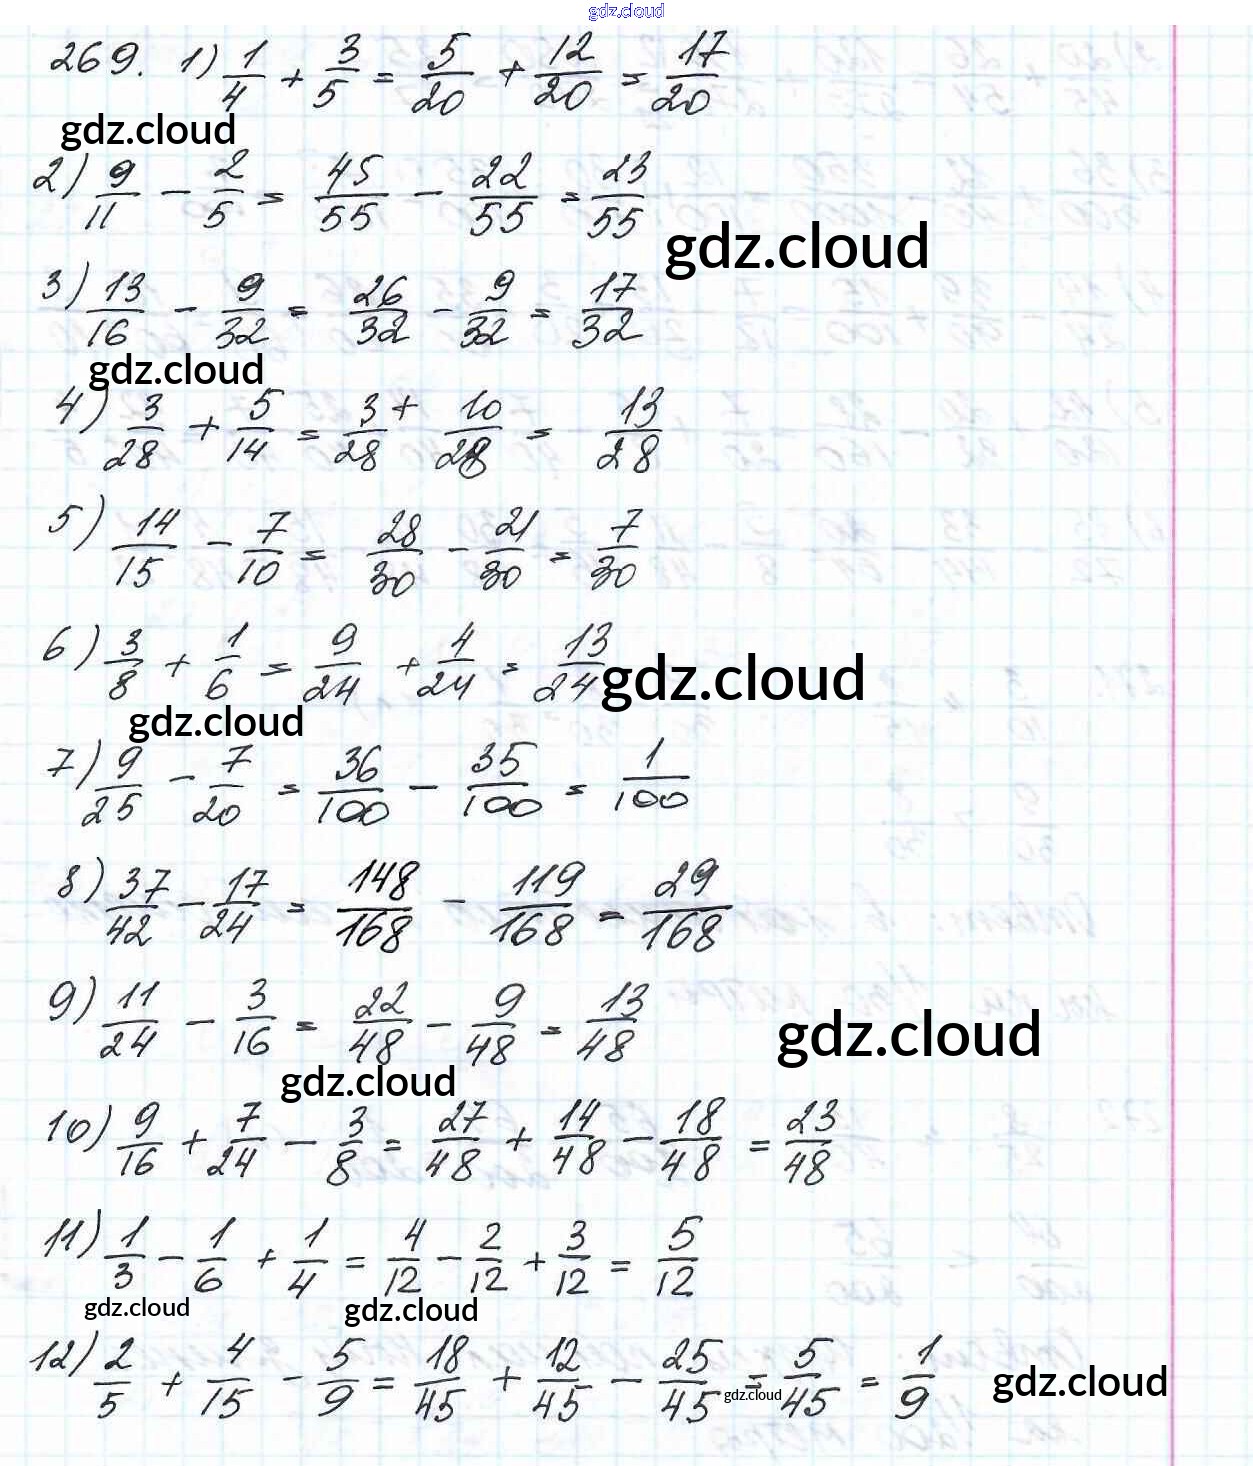 gdz.cloud
269. 1) 1/4 + 3/5 = 5/20 + 12/20 = 17/20
gdz.cloud
2) 9/11 - 2/5 = 45/55 - 22/55 = 23/55
gdz.cloud
3) 13/16 - 9/32 = 26/32 - 9/32 = 17/32
gdz.cloud
4) 3/28 + 5/14 = 3/28 + 10/28 = 13/28
5) 14/15 - 7/10 = 28/30 - 21/30 = 7/30
6) 3/8 + 1/6 = 9/24 + 4/24 = 13/24
gdz.cloud
gdz.cloud
7) 9/25 - 7/20 = 36/100 - 35/100 = 1/100
8) 37/42 - 17/24 = 148/168 - 119/168 = 29/168
9) 11/24 - 3/16 = 22/48 - 9/48 = 13/48
gdz.cloud
gdz.cloud
10) 9/16 + 7/24 - 3/8 = 27/48 + 14/48 - 18/48 = 23/48
11) 1/3 - 1/6 + 1/4 = 4/12 - 2/12 + 3/12 = 5/12
gdz.cloud
gdz.cloud
12) 2/5 + 4/15 - 5/9 = 18/45 + 12/45 - 25/45 = 5/45 = 1/9
gdz.cloud
gdz.cloud